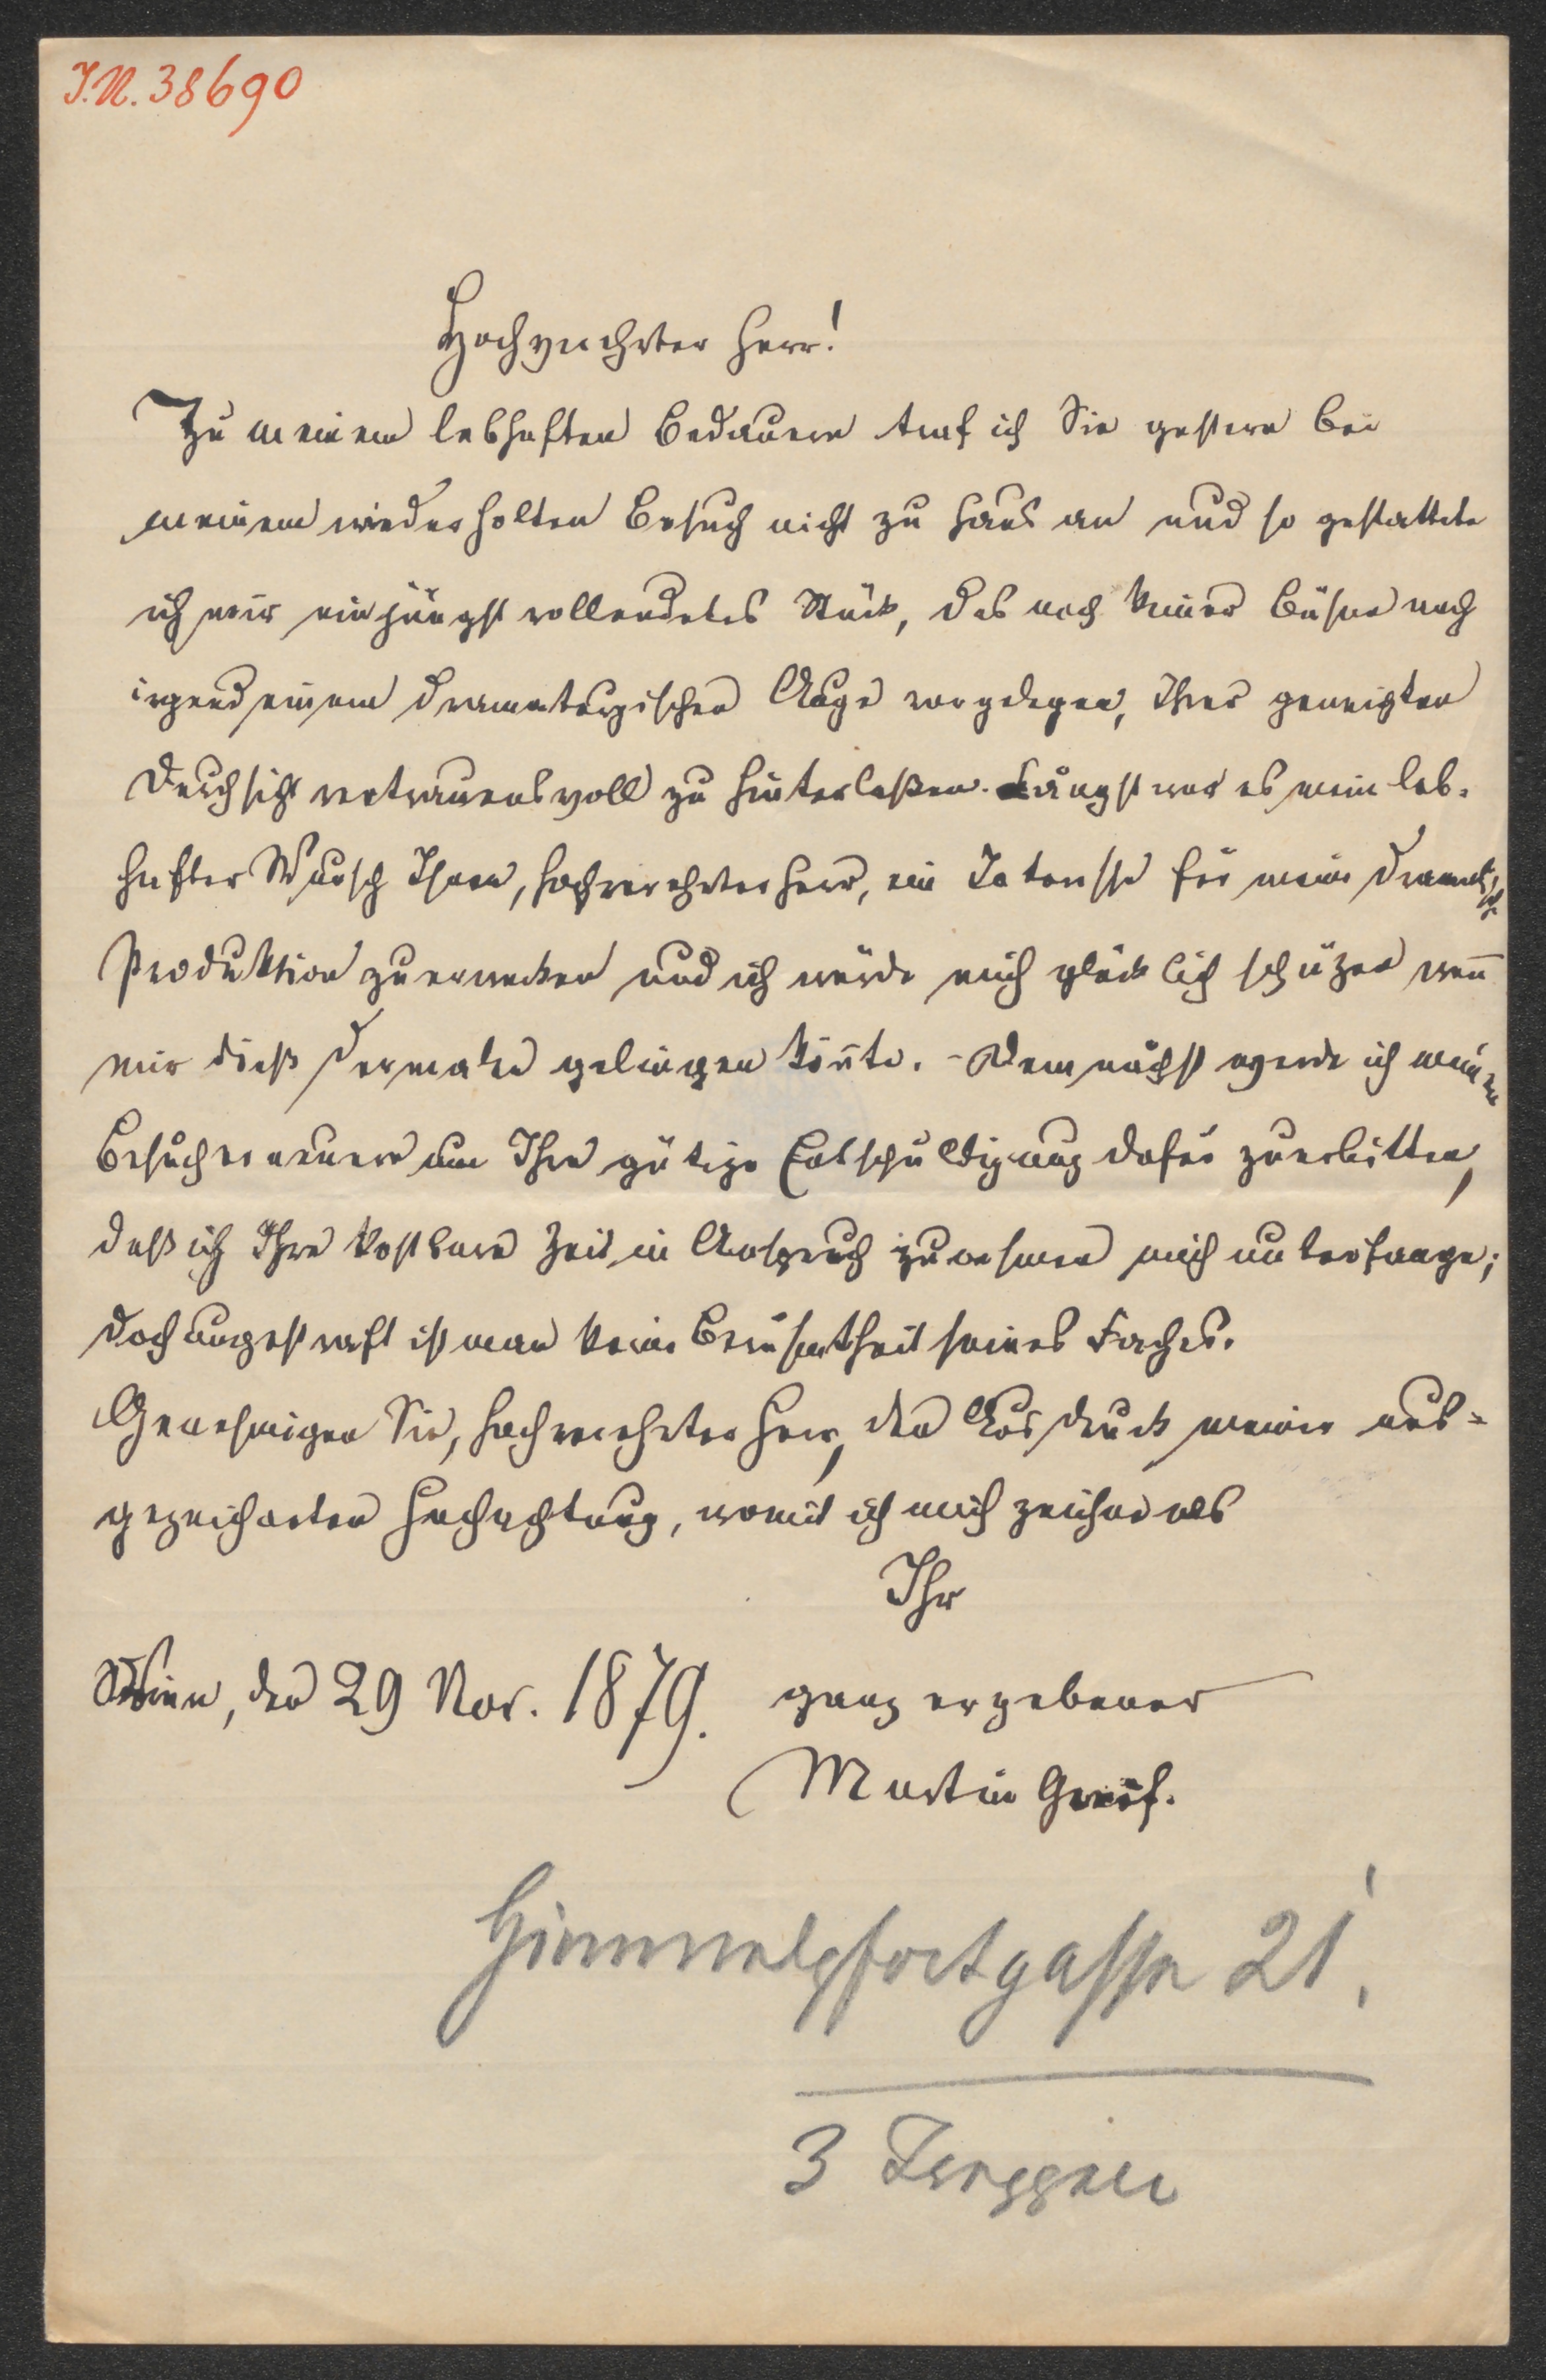 I.N. 38690
Hochgeehrter Herr!
Zu meinem lebhaften Bedauern traf ich Sie gestern bei
meinem wiederholten Besuch nicht zu Haus an und so gestattete
ich mir ein jüngst vollendetes Stück, das noch keiner Bühne noch
irgend einem dramaturgischen Auge vorgelegen, Ihrer geneigten
Durchsicht vertrauensvoll zu hinterlaßen. Längst war es mein leb-
hafter Wunsch Ihnen, hochverehrter Herr, ein Interesse für meine dramatische
Produktion zu erwecken und ich würde mich glücklich schäzen wen̄
mir dieß dermalen gelingen kön̄te. - Demnächst werde ich meinen
Besuch erneuern um Ihre gütige Entschuldigung dafür zu erbitten,
daß ich Ihre kostbare Zeit in Anspruch zu nehmen mich unterfange;
doch ungestraft ist man keine Berühmtheit seines Faches.
Genehmigen Sie, hochverehrter Herr, den Ausdruck meiner aus-
gezeichneten Hochachtung, womit ich mich zeichne als
Ihr
Wien, den 29 Nov. 1879. ganz ergebener
Martin Greif.
Himmelpfortgasse 21,
3 Treppen